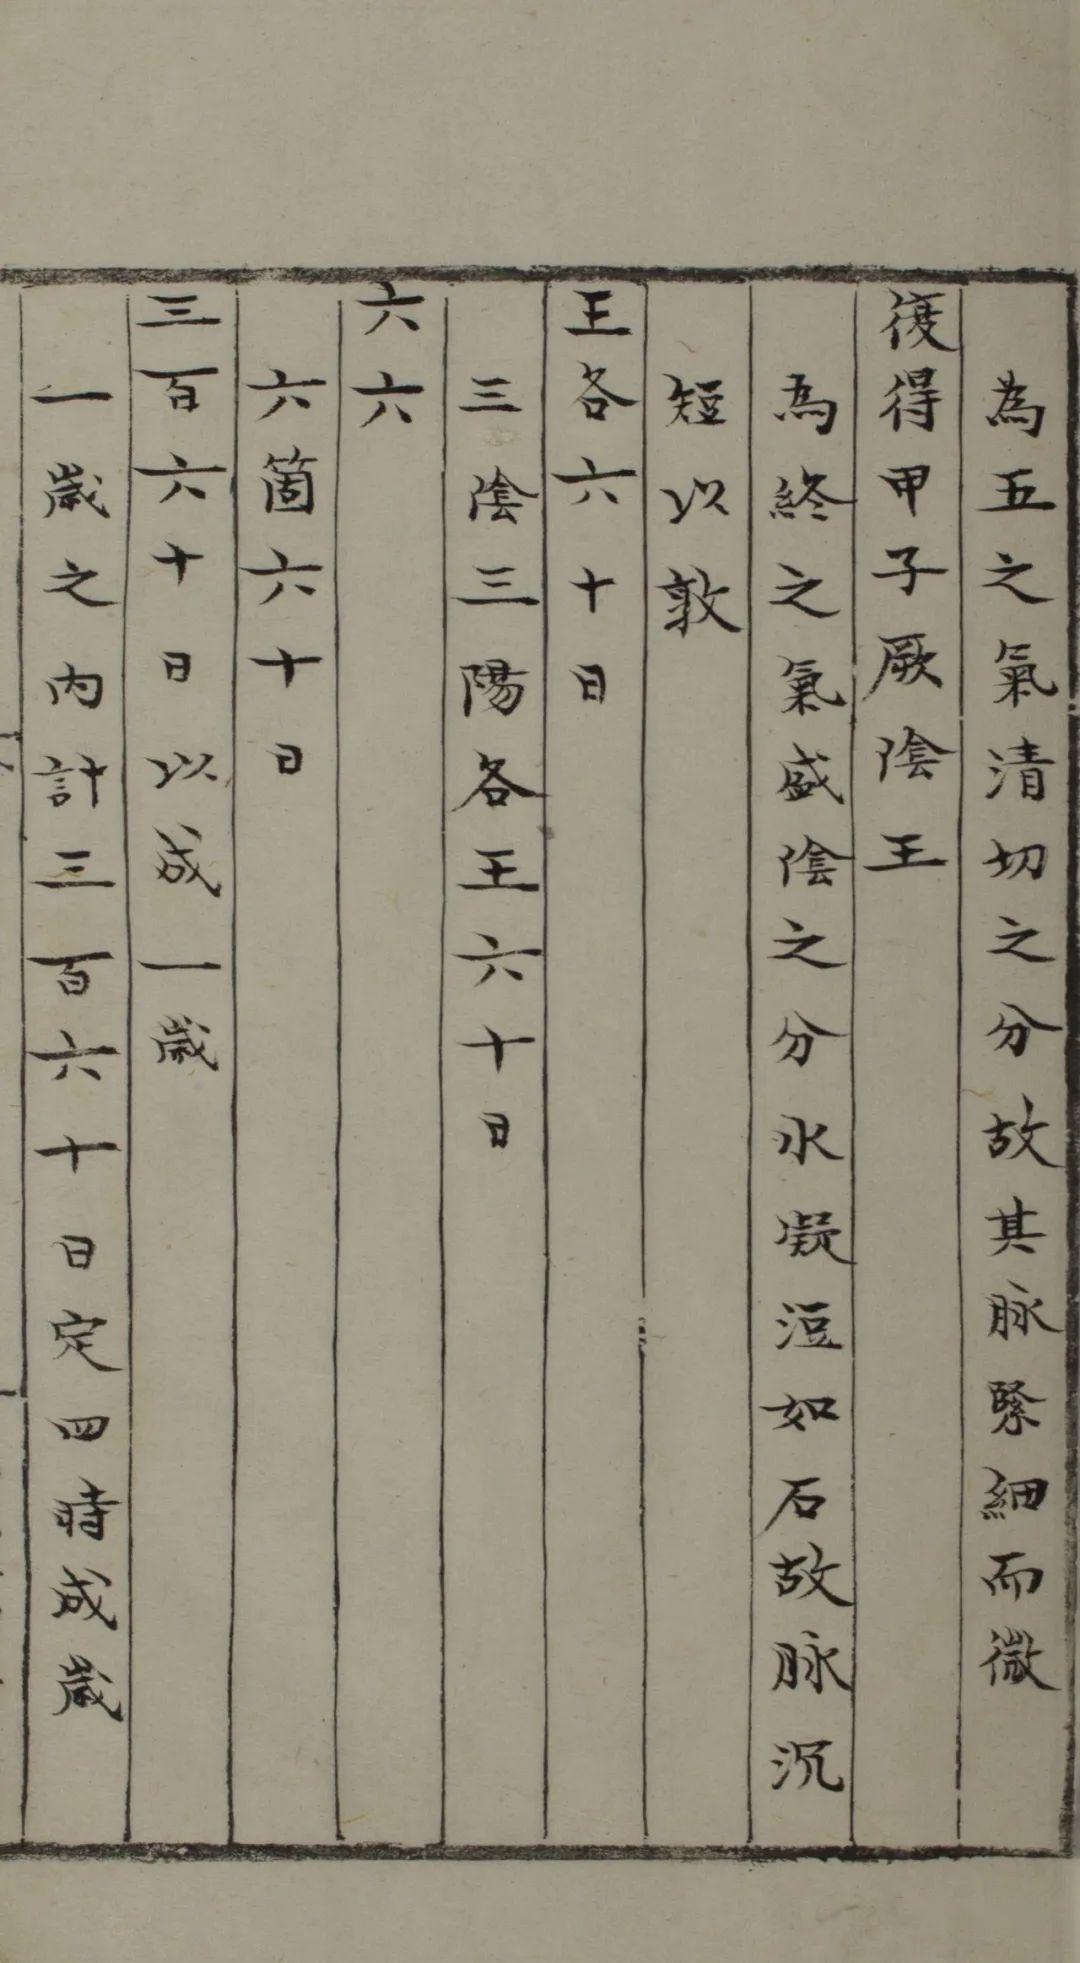 為五之氣清切之分故其脉緊細而微
復得甲子厥陰王
為終之氣盛陰之分水凝洹如石故脉沉
短以敦
王各六十日
三陰三陽各王六十日
六六
六箇六十日
三百六十日以成一歲
一歲之內計三百六十日定四時成歲